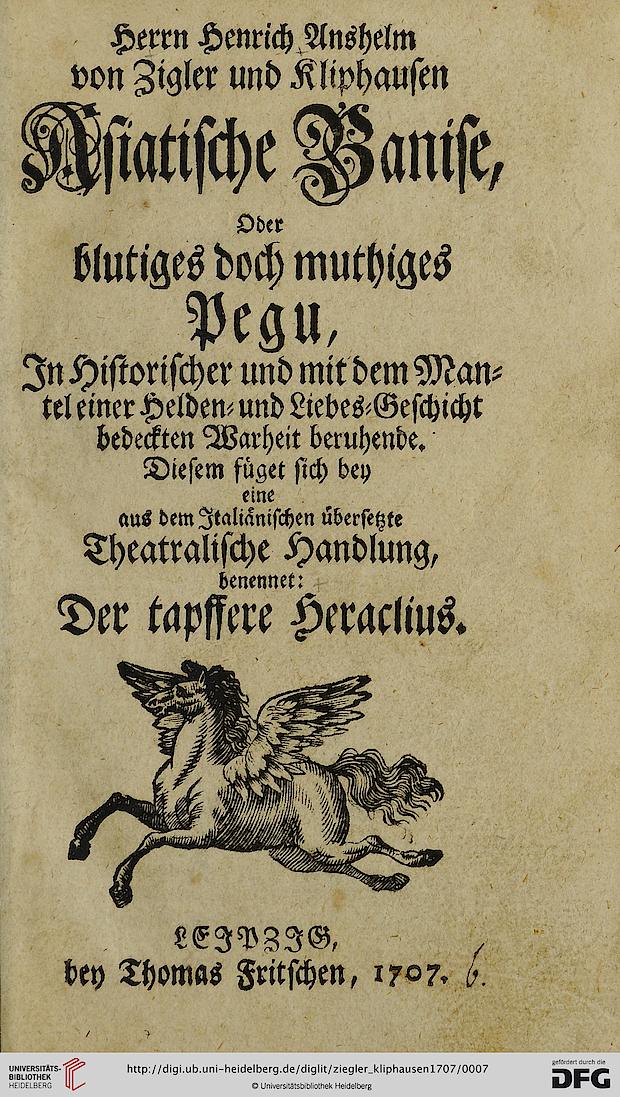 Herrn Henrich Anshelm
von Zigler und Kliphausen
Asiatische Banise,
Oder
blutiges doch muthiges
Pegu,
In Historischer und mit dem Man⸗
tel einer Helden⸗ und Liebes⸗Geschicht
bedeckten Warheit beruhende.
Diesem füget sich bey
eine
aus dem Italiänischen übersetzte
Theatralische Handlung,
benennet:
Der tapffere Heraclius.
LEIPZIG,
bey Thomas Fritschen, 1707. 6.
UNIVERSITÄTS-
BIBLIOTHEK
HEIDELBERG
http://digi.ub.uni-heidelberg.de/diglit/ziegler_kliphausen1707/0007
© Universitätsbibliothek Heidelberg
gefördert durch die
DFG